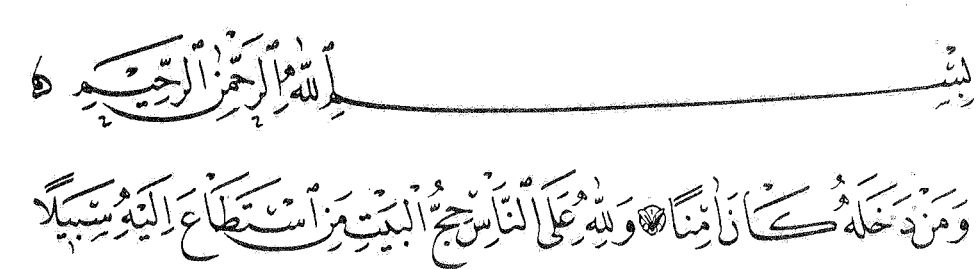 بِسْمِ اللَّهِ الرَّحْمَٰنِ الرَّحِيمِ
وَمَنْ دَخَلَهُ كَانَ آمِنًا وَلِلَّهِ عَلَى النَّاسِ حِجُّ الْبَيْتِ مَنِ اسْتَطَاعَ إِلَيْهِ سَبِيلًا